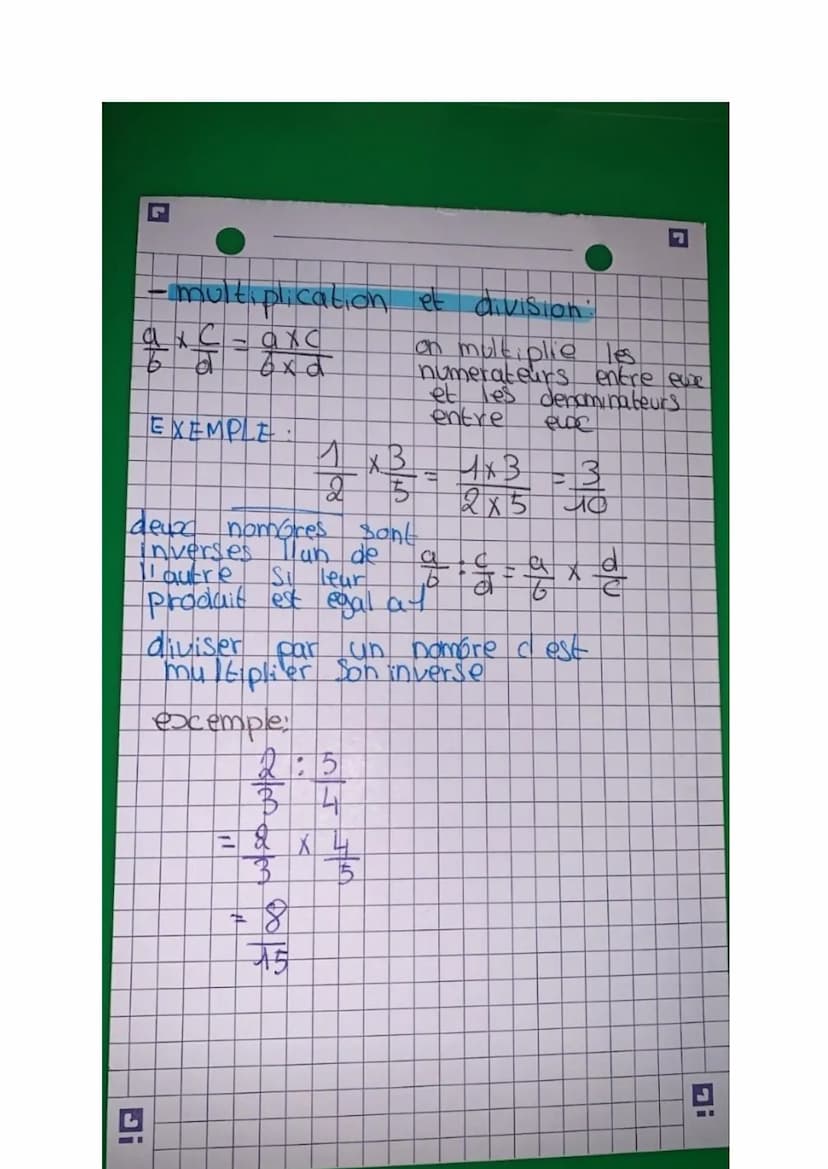 - multiplication et division:
a/b x c/d = axc/bxd
on multiplie les
numerateurs entre eux
et les denominateurs
entre eux
EXEMPLE :
1/2 x 3/5 = 1x3/2x5 = 3/10
deux nombres sont
inverses l'un de
l'autre si leur
produit est egal a 1
a/b : c/d = a/b x d/c
diviser par un nombre c est
multiplier son inverse
excemple:
2/3 : 5/4
= 2/3 x 4/5
= 8/15